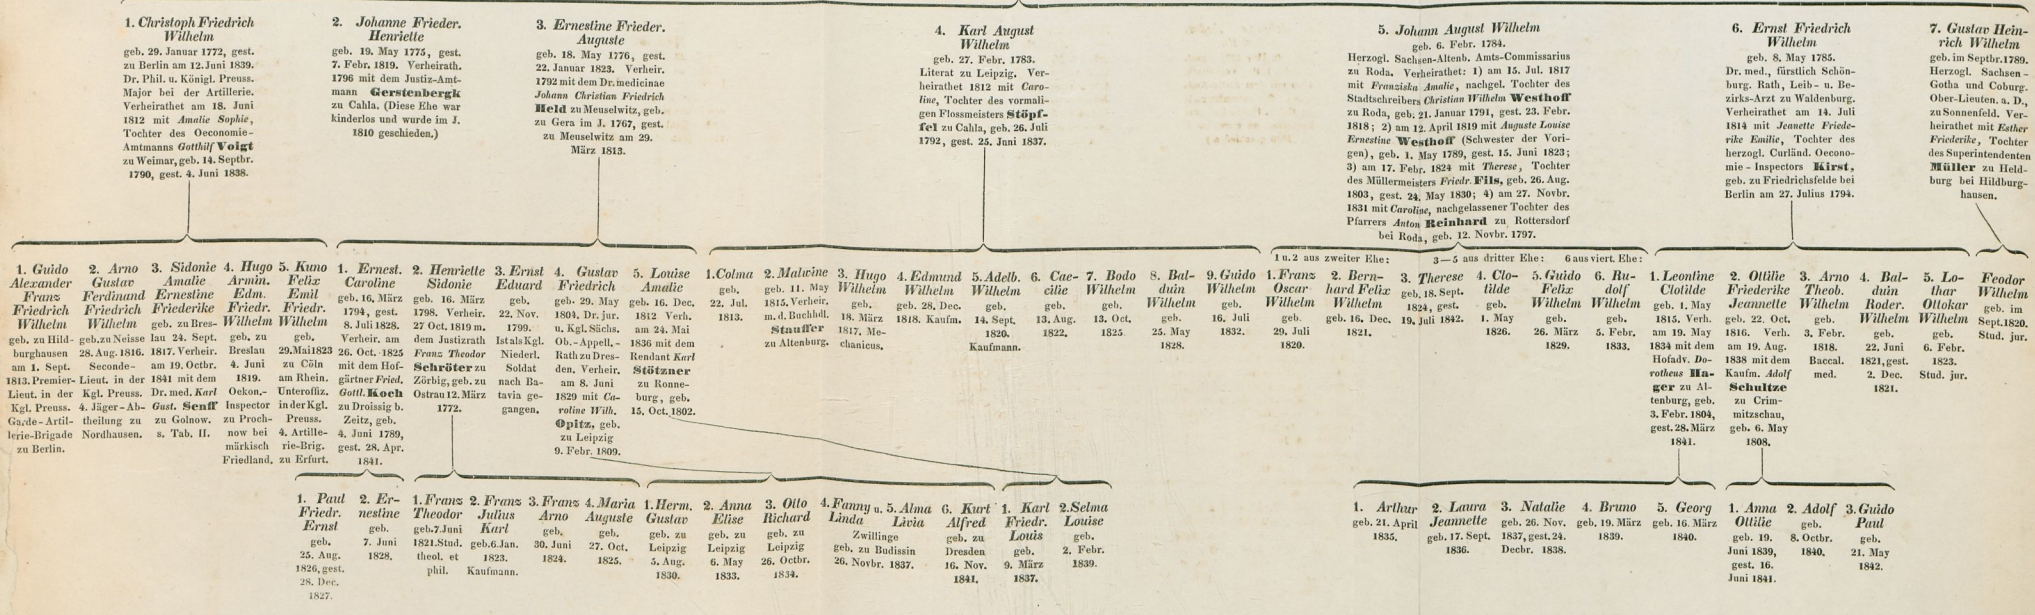 1. Christoph Friedrich
Wilhelm
geb. 29. Januar 1772, gest.
zu Berlin am 12. Juni 1839.
Dr. Phil. u. Königl. Preuss.
Major bei der Artillerie.
Verheirathet am 18. Juni
1812 mit Amalie Sophie,
Tochter des Oeconomie-
Amtmanns Gotthilf Voigt
zu Weimar, geb. 14. Septbr.
1790, gest. 4. Juni 1838.
2. Johanne Frieder.
Henriette
geb. 19. May 1775, gest.
7. Febr. 1819. Verheirath.
1796 mit dem Justiz-Amt-
mann Gerstenbergk
zu Cahla. (Diese Ehe war
kinderlos und wurde im J.
1810 geschieden.)
3. Ernestine Frieder.
Auguste
geb. 18. May 1776, gest.
22. Januar 1823. Verheir.
1792 mit dem Dr. medicinae
Johann Christian Friedrich
Held zu Meuselwitz, geb.
zu Gera im J. 1767, gest.
zu Meuselwitz am 29.
März 1813.
4. Karl August
Wilhelm
geb. 27. Febr. 1783.
Literat zu Leipzig. Ver-
heirathet 1812 mit Caro-
line, Tochter des vormali-
gen Flossmeisters Stöpf-
fel zu Cahla, geb. 26. Juli
1792, gest. 25. Juni 1837.
5. Johann August Wilhelm
geb. 6. Febr. 1784.
Herzogl. Sachsen-Altenb. Amts-Commissarius
zu Roda. Verheirathet: 1) am 15. Jul. 1817
mit Franziska Amalie, nachgel. Tochter des
Stadtschreibers Christian Wilhelm Westhoff
zu Roda, geb. 21. Januar 1791, gest. 23. Febr.
1818; 2) am 12. April 1819 mit Auguste Louise
Ernestine Westhoff (Schwester der Vori-
gen), geb. 1. May 1789, gest. 15. Juni 1823;
3) am 17. Febr. 1824 mit Therese, Tochter
des Müllermeisters Friedr. Fils, geb. 26. Aug.
1803, gest. 24. May 1830; 4) am 27. Novbr.
1831 mit Caroline, nachgelassener Tochter des
Pfarrers Anton Reinhard zu Rottersdorf
bei Roda, geb. 12. Novbr. 1797.
6. Ernst Friedrich
Wilhelm
geb. 8. May 1785.
Dr. med., fürstlich Schön-
burg. Rath, Leib- u. Be-
zirks-Arzt zu Waldenburg.
Verheirathet am 14. Juli
1814 mit Jeanette Friede-
rike Emilie, Tochter des
herzogl. Curländ. Oecono-
mie-Inspectors Kirst,
geb. zu Friedrichsfelde bei
Berlin am 27. Julius 1794.
7. Gustav Hein-
rich Wilhelm
geb. im Septbr. 1789.
Herzogl. Sachsen-
Gotha und Coburg.
Ober-Lieuten. a. D.,
zu Sonnenfeld. Ver-
heirathet mit Esther
Friederike, Tochter
des Superintendenten
Müller zu Held-
burg bei Hildburg-
hausen.
1. Guido
Alexander
Franz
Friedrich
Wilhelm
geb. zu Hild-
burghausen
am 1. Sept.
1813. Premier-
Lieut. in der
Kgl. Preuss.
Garde-Artil-
lerie-Brigade
zu Berlin.
2. Arno
Gustav
Ferdinand
Friedrich
Wilhelm
geb. zu Neisse
28. Aug. 1816.
Seconde-
Lieut. in der
Kgl. Preuss.
4. Jäger-Ab-
theilung zu
Nordhausen.
3. Sidonie
Amalie
Ernestine
Friederike
geb. zu Bres-
lau 24. Sept.
1817. Verheir.
am 19. Octbr.
1841 mit dem
Dr. med. Karl
Gust. Senff
zu Golnow.
s. Tab. II.
4. Hugo
Armin.
Edm.
Friedr.
Wilhelm
geb. zu
Breslau
4. Juni
1819.
Oekon.-
Inspector
zu Proch-
now bei
märkisch
Friedland.
5. Kuno
Felix
Emil
Friedr.
Wilhelm
geb.
29. Mai 1823
zu Cöln
am Rhein.
Unteroffiz.
in der Kgl.
Preuss.
4. Artille-
rie-Brig.
zu Erfurt.
1. Ernest.
Caroline
geb. 16. März
1794, gest.
8. Juli 1828.
Verheir. am
26. Oct. 1825
mit dem Hof-
gärtner Fried.
Gottl. Koch
zu Droissig b.
Zeitz, geb.
4. Juni 1789,
gest. 28. Apr.
1841.
2. Henriette
Sidonie
geb. 16. März
1798. Verheir.
27 Oct. 1819 m.
dem Justizrath
Franz Theodor
Schröter zu
Zörbig, geb. zu
Ostrau 12. März
1772.
3. Ernst
Eduard
geb.
22. Nov.
1799.
Ist als Kgl.
Niederl.
Soldat
nach Ba-
tavia ge-
gangen.
4. Gustav
Friedrich
geb. 29. May
1804. Dr. jur.
u. Kgl. Sächs.
Ob.-Appell.-
Rath zu Dres-
den. Verheir.
am 8. Juni
1829 mit Ca-
roline Wilh.
Opitz, geb.
zu Leipzig
9. Febr. 1809.
5. Louise
Amalie
geb. 16. Dec.
1812 Verh.
am 24. Mai
1836 mit dem
Rendant Karl
Stötzner
zu Ronne-
burg, geb.
15. Oct. 1802.
1. Colma
geb.
22. Jul.
1813.
2. Malwine
geb. 11. May
1815. Verheir.
m. d. Buchhdl.
Stauffer
zu Altenburg.
3. Hugo
Wilhelm
geb.
18. März
1817. Me-
chanicus.
4. Edmund
Wilhelm
geb. 28. Dec.
1818. Kaufm.
5. Adelb.
Wilhelm
geb.
14. Sept.
1820.
Kaufmann.
6. Cae-
cilie
geb.
13. Aug.
1822.
7. Bodo
Wilhelm
geb.
13. Oct.
1825.
8. Bal-
duin
Wilhelm
geb.
25. May
1828.
9. Guido
Wilhelm
geb.
16. Juli
1832.
1 u. 2 aus zweiter Ehe:
3—5 aus dritter Ehe:
6 aus viert. Ehe:
1. Franz
Oscar
Wilhelm
geb.
29. Juli
1820.
2. Bern-
hard Felix
Wilhelm
geb. 16. Dec.
1821.
3. Therese
geb. 18. Sept.
1824, gest.
19. Juli 1842.
4. Clo-
tilde
geb.
1. May
1826.
5. Guido
Felix
Wilhelm
geb.
26. März
1829.
6. Ru-
dolf
Wilhelm
geb.
5. Febr.
1833.
1. Leontine
Clotilde
geb. 1. May
1815. Verh.
am 19. May
1834 mit dem
Hofadv. Do-
rotheus Ha-
ger zu Al-
tenburg, geb.
3. Febr. 1804,
gest. 28. März
1841.
2. Ottilie
Friederike
Jeannette
geb. 22. Oct.
1816. Verh.
am 19. Aug.
1838 mit dem
Kaufm. Adolf
Schultze
zu Crim-
mitzschau,
geb. 6. May
1808.
3. Arno
Theob.
Wilhelm
geb.
3. Febr.
1818.
Baccal.
med.
4. Bal-
duin
Roder.
Wilhelm
geb.
22. Juni
1821, gest.
2. Dec.
1821.
5. Lo-
thar
Ottokar
Wilhelm
geb.
6. Febr.
1823.
Stud. jur.
Feodor
Wilhelm
geb. im
Sept. 1820.
Stud. jur.
1. Paul
Friedr.
Ernst
geb.
25. Aug.
1826, gest.
28. Dec.
1827.
2. Er-
nestine
geb.
7. Juni
1828.
1. Franz
Theodor
geb. 7. Juni
1821. Stud.
theol. et
phil.
2. Franz
Julius
Karl
geb. 6. Jan.
1823.
Kaufmann.
3. Franz
Arno
geb.
30. Juni
1824.
4. Maria
Auguste
geb.
27. Oct.
1825.
1. Herm.
Gustav
geb. zu
Leipzig
5. Aug.
1830.
2. Anna
Elise
geb. zu
Leipzig
6. May
1833.
3. Otto
Richard
geb. zu
Leipzig
26. Octbr.
1834.
4. Fanny u. 5. Alma
Linda Livia
Zwillinge
geb. zu Budissin
26. Novbr 1837.
6. Kurt
Alfred
geb. zu
Dresden
16. Nov.
1841.
1. Karl
Friedr.
Louis
geb.
9. März
1837.
2. Selma
Louise
geb.
2. Febr.
1839.
1. Arthur
geb. 21. April
1835.
2. Laura
Jeannette
geb. 17. Sept.
1836.
3. Natalie
geb. 26. Nov.
1837, gest. 24.
Decbr. 1838.
4. Bruno
geb. 19. März
1839.
5. Georg
geb. 16. März
1840.
1. Anna
Ottilie
geb. 19.
Juni 1839,
gest. 16.
Juni 1841.
2. Adolf
geb.
8. Octbr.
1840.
3. Guido
Paul
geb.
21. May
1842.